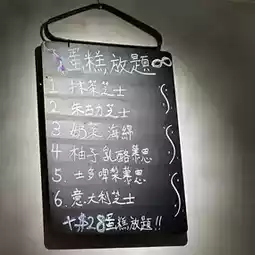 蛋糕放題∞
1. 抹茶芝士
2. 朱古力芝士
3. 奶茶海綿
4. 柚子乳酪慕思
5. 士多啤梨慕思
6. 意大利芝士
十$28蛋糕放題!!